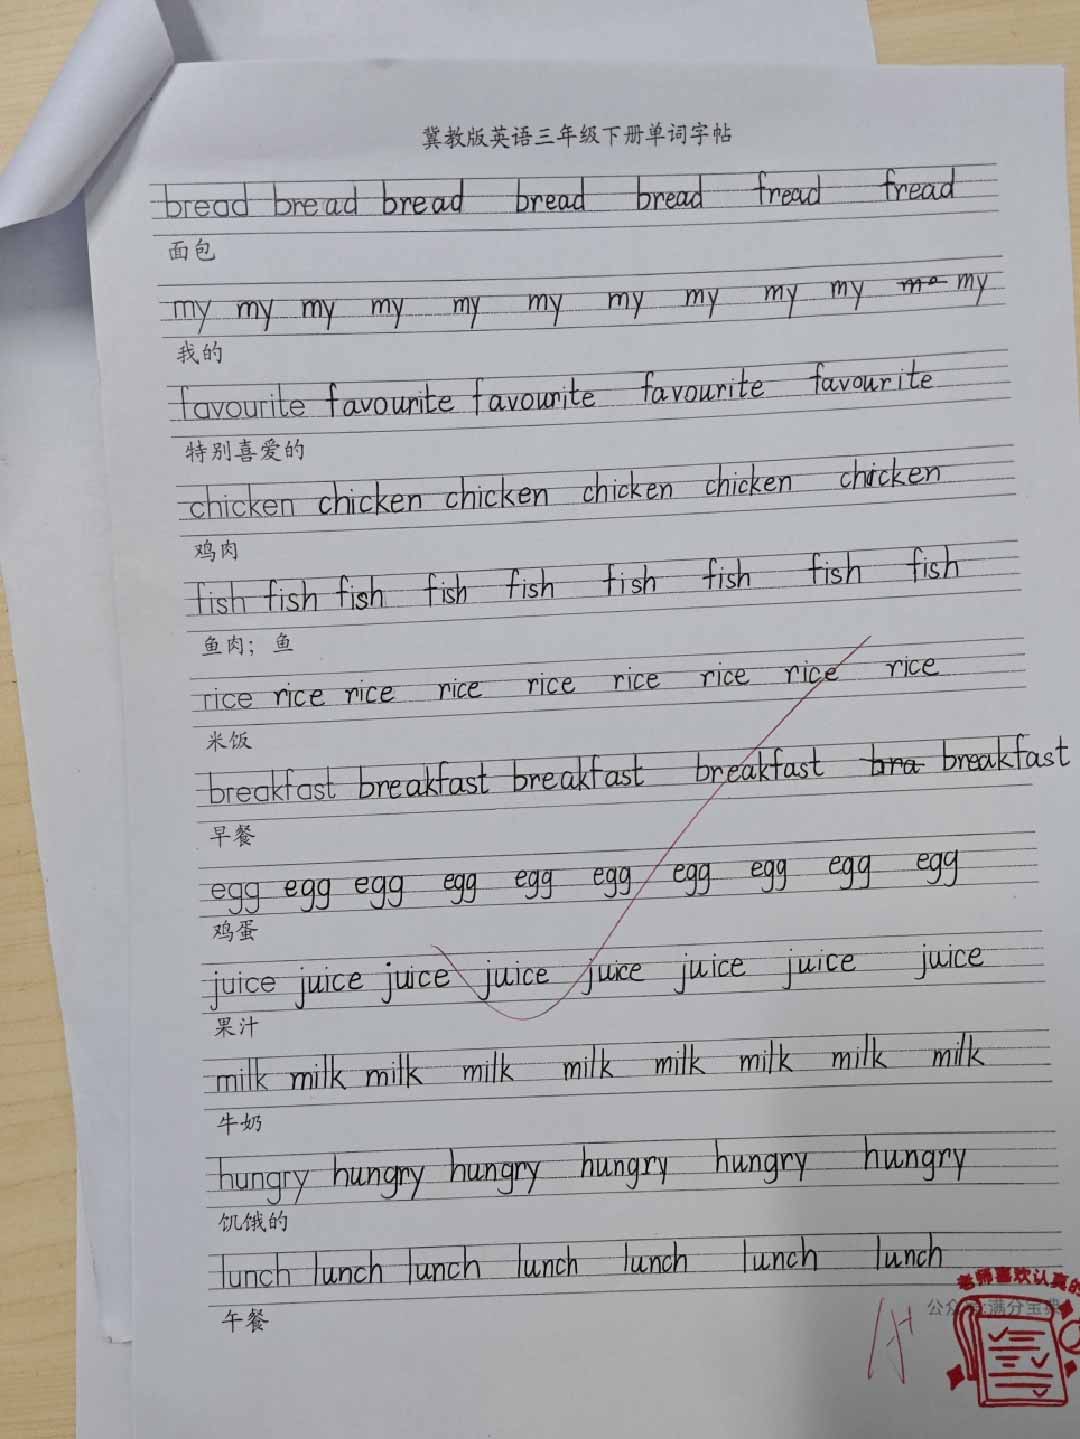 冀教版英语三年级下册单词字帖
bread bread bread bread bread fread fread
面包
my my my my my my my my my my ma my
我的
favourite favourite favourite favourite favourite
特别喜爱的
chicken chicken chicken chicken chicken chicken
鸡肉
fish fish fish fish fish fish fish fish fish
鱼肉；鱼
rice rice rice rice rice rice rice rice rice
米饭
breakfast breakfast breakfast breakfast bra breakfast
早餐
egg egg egg egg egg egg egg egg egg egg
鸡蛋
juice juice juice juice juice juice juice juice
果汁
milk milk milk milk milk milk milk milk milk
牛奶
hungry hungry hungry hungry hungry hungry
饥饿的
lunch lunch lunch lunch lunch lunch lunch
午餐
老师喜欢认真的
满分宝典
A+